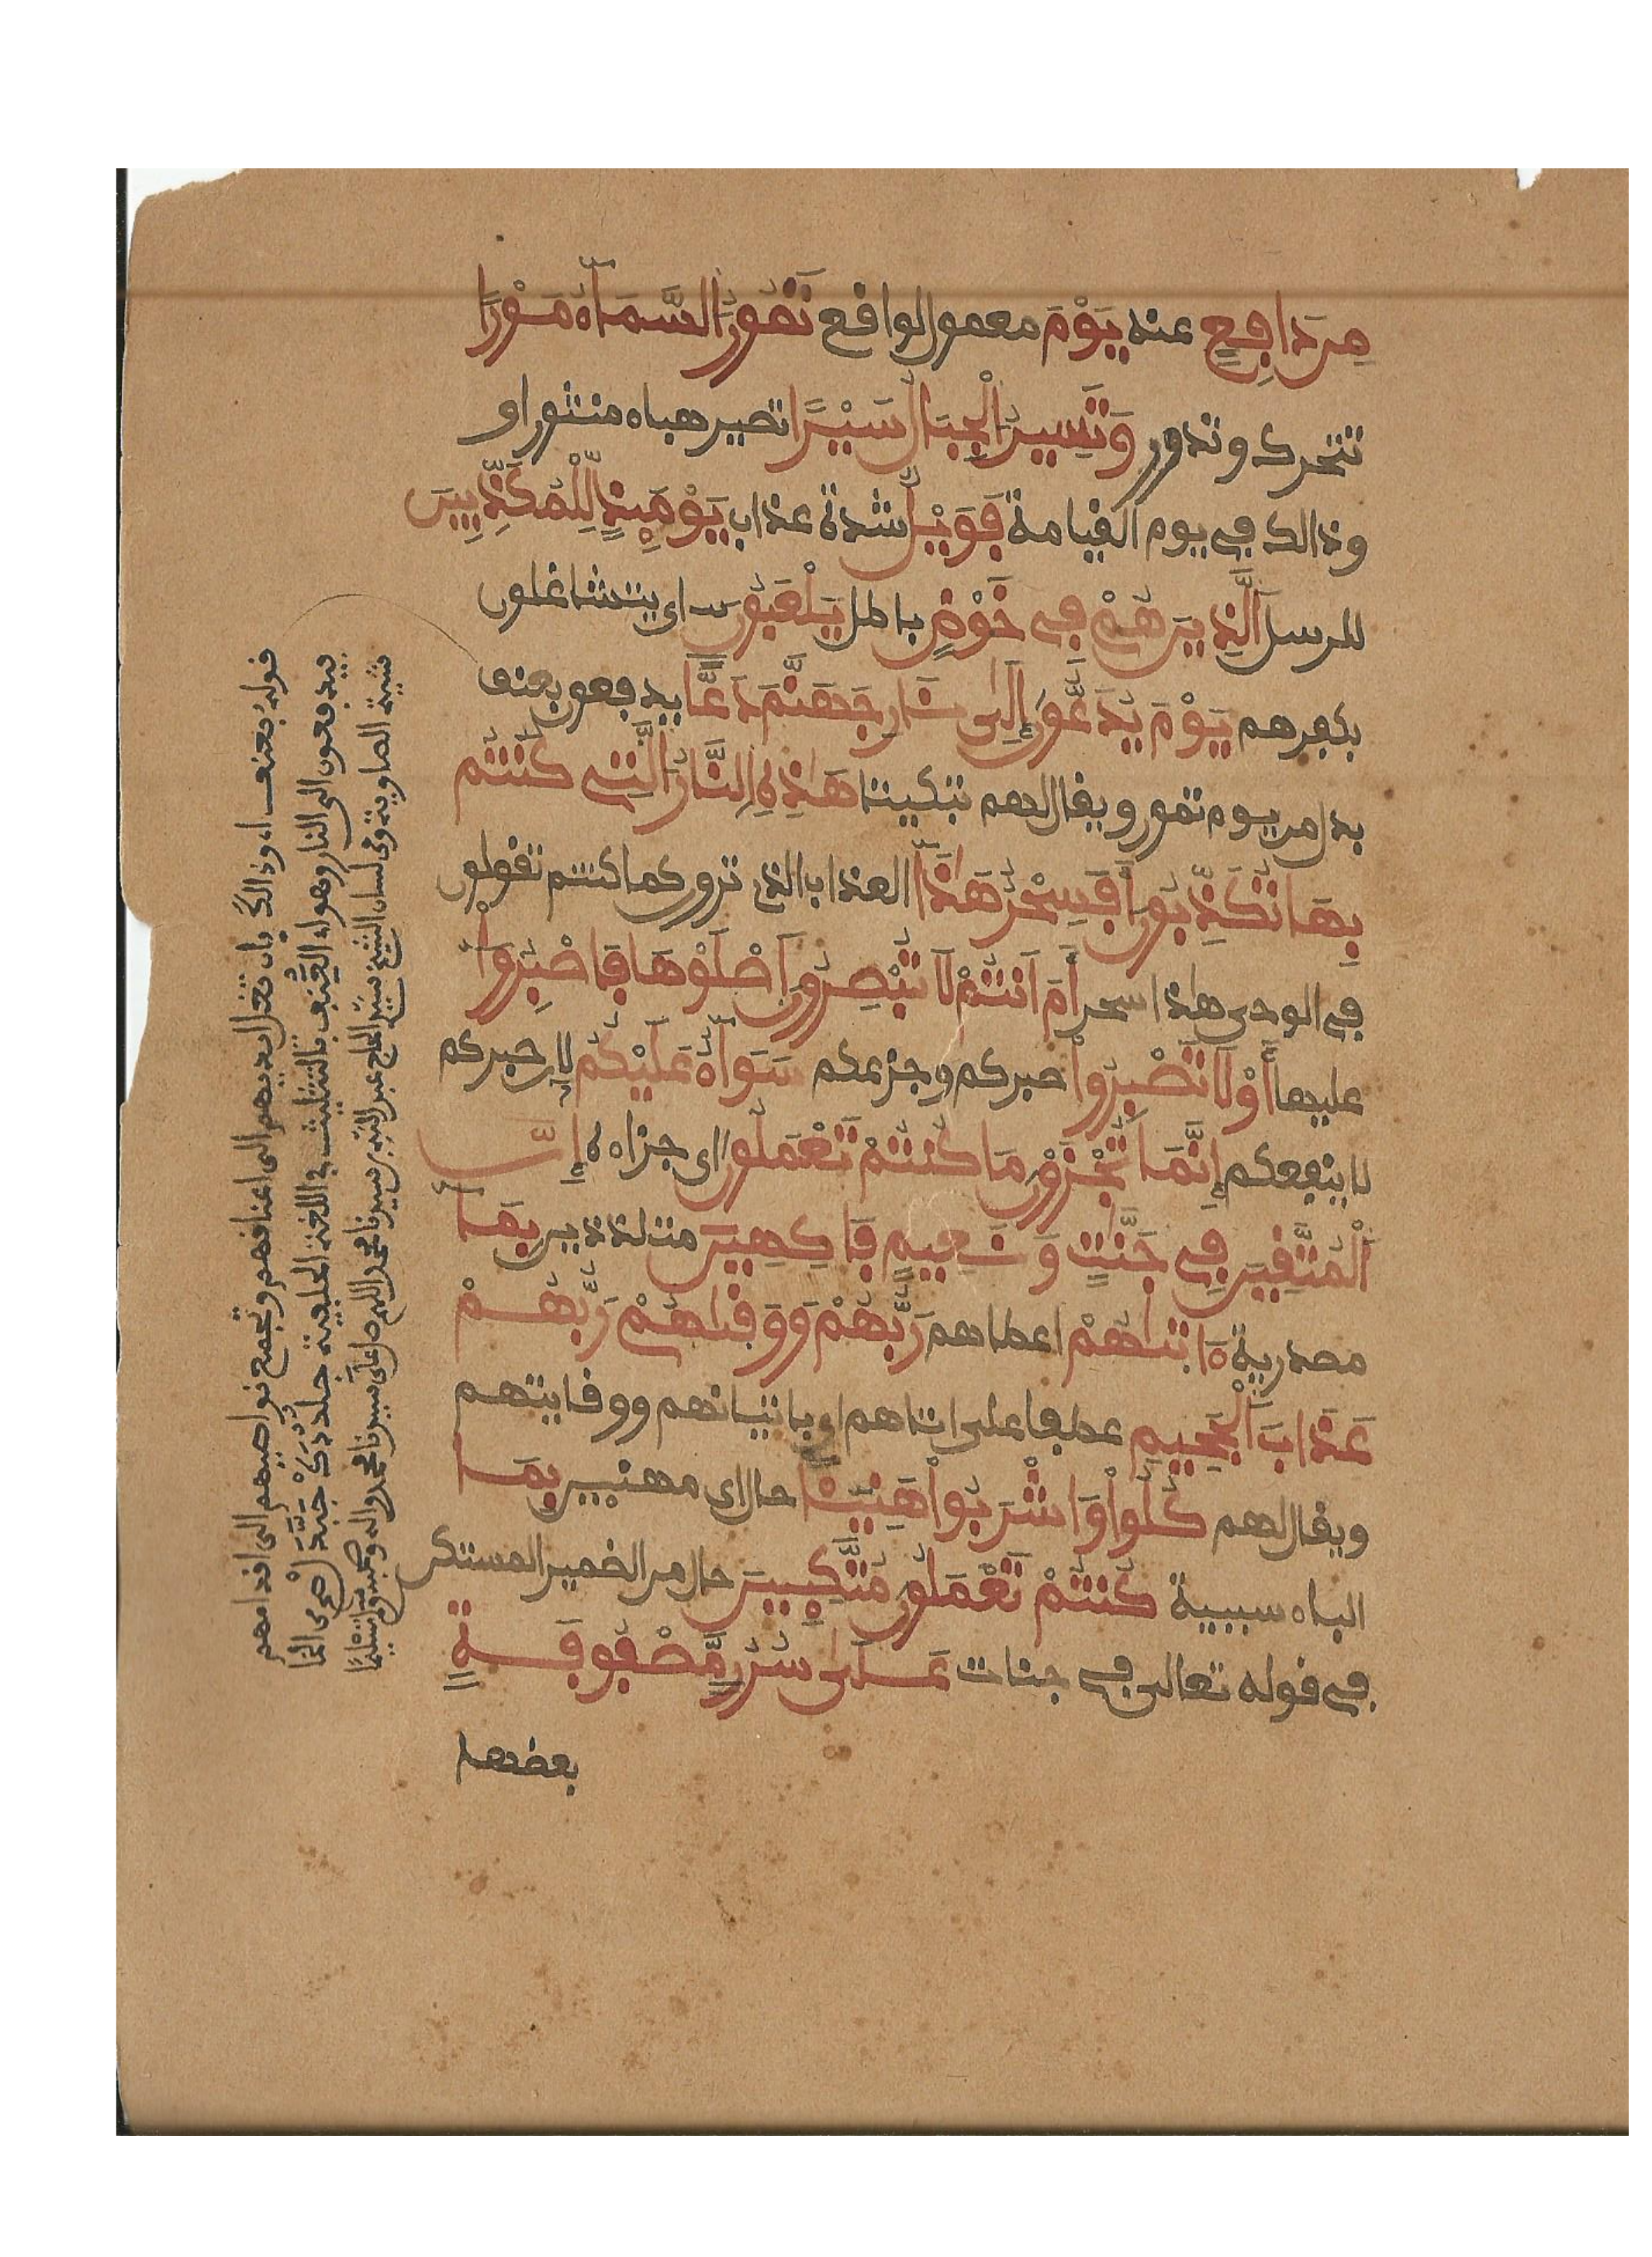 مِن دَافِعٍ عنه يَوْمَ معمول لواقع تَمُورُ السَّمَآءُ مَوْرًا
تتحرك وتدور وَتَسِيرُ الْجِبَالُ سَيْرًا تصير هباء منثورا و
وذالك في يوم القيامة فَوَيْلٌ شدة عذاب يَوْمَئِذٍ لِّلْمُكَذِّبِينَ
للرسل الَّذِينَ هُمْ فِي خَوْضٍ باطل يَلْعَبُونَ اى يتشاغلون
بكفرهم يَوْمَ يُدَعُّونَ إِلَى نَارِ جَهَنَّمَ دَعًّا يدفعون بعنف
بدل من يوم تمور ويقال لهم تبكيتا هَٰذِهِ النَّارُ الَّتِي كُنتُم
بِهَا تُكَذِّبُونَ أَفَسِحْرٌ هَٰذَا العذاب الذى ترون كما كنتم تقولون
في الوحى هاذا سحر أَمْ أَنتُمْ لَا تُبْصِرُونَ اَصْلَوْهَا فَاصْبِرُوا
عليها أَوْ لَا تَصْبِرُوا صبركم وجزعكم سَوَآءٌ عَلَيْكُمْ لان صبركم
لا ينفعكم إِنَّمَا تُجْزَوْنَ مَا كُنتُمْ تَعْمَلُونَ اى جزاءه إِنَّ
اَلْمُتَّقِينَ فِي جَنَّٰتٍ وَنَعِيمٍ فَاكِهِينَ متلذذين بِمَا
مصدرية ءَاتَىٰهُمْ اعطاهم رَبُّهُمْ وَوَقَىٰهُمْ رَبُّهُمْ
عَذَابَ الْجَحِيمِ عطفا على اتاهم اى باتيانهم ووقايتهم
ويقال لهم كُلُوا وَاشْرَبُوا هَنِيئًا حال اى مهنيين بِمَا
الباء سببية كُنتُمْ تَعْمَلُونَ مُتَّكِـِٕينَ حال من الضمير المستكن
في قوله تعالى في جنات عَلَىٰ سُرُرٍ مَّصْفُوفَةٍ
بعضها
قوله بعنف اى وذالك بان تغل ايديهم الى اعناقهم وتجمع نواصيهم الى اقدامهم
فيدفعون الى النار وهواء العنف بالتثليث في اللغة
شيبة الصاوية وفى لسان الشيخ سيد الحاج عبد الله بن سيدنا محمد اللهم صل على سيدنا محمد واله وصحبه وسلم تسليما